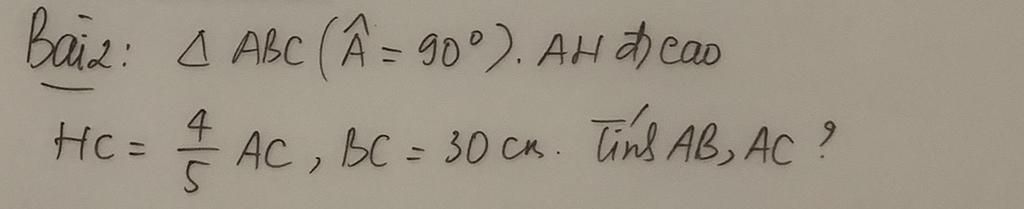 Bài 2: Δ ABC (Â = 90°). AH đ) cao
HC = 4/5 AC, BC = 30 cm. Tính AB, AC ?